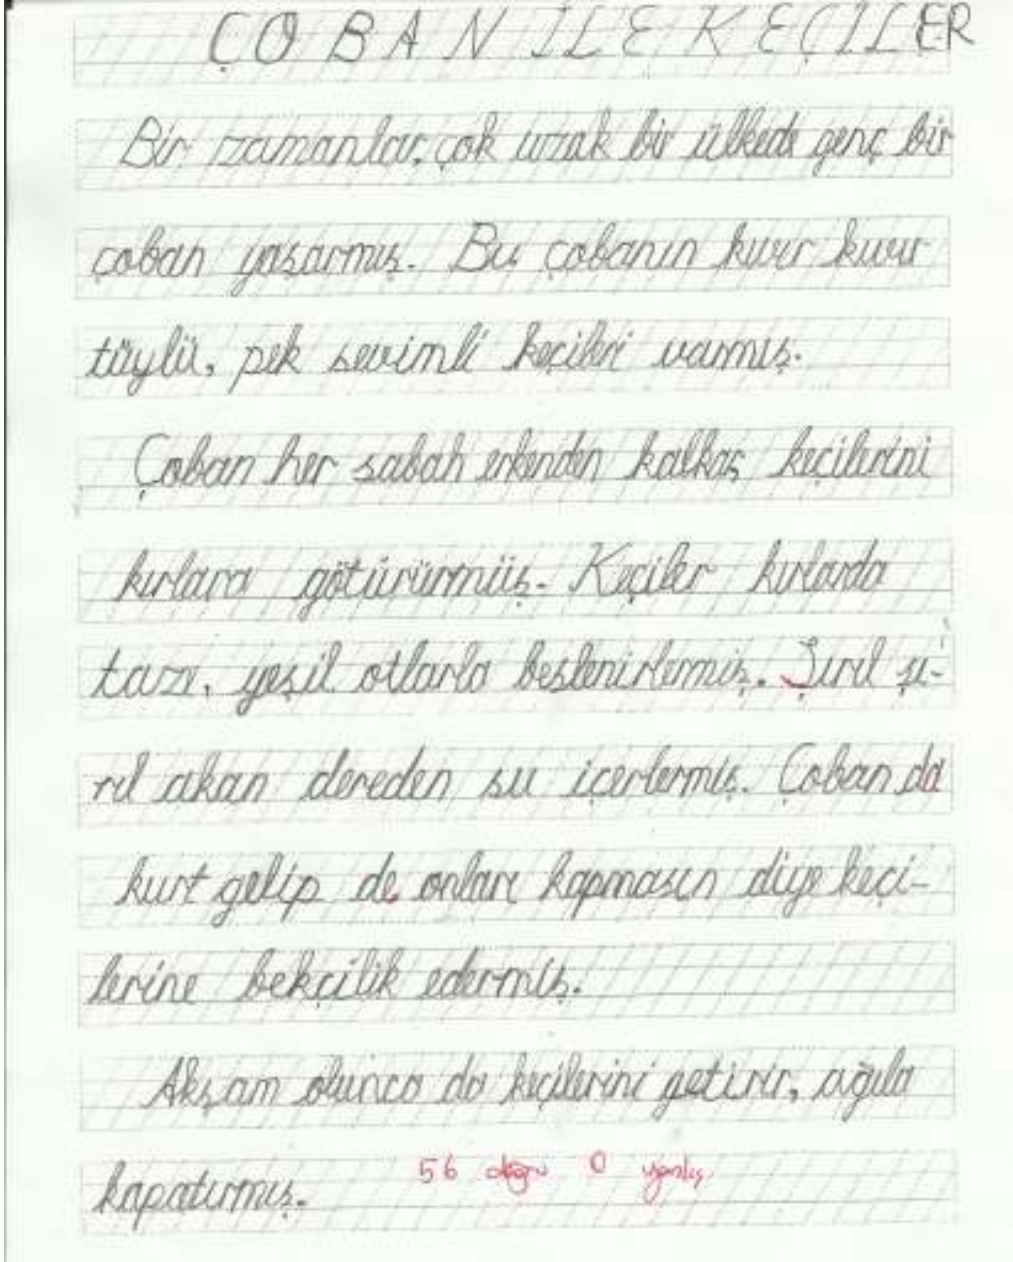 ÇOBAN İLE KEÇİLER
Bir zamanlar, çok uzak bir ülkede genç bir
çoban yaşarmış. Bu çobanın kıvır kıvır
tüylü, pek sevimli keçileri varmış.
Çoban her sabah erkenden kalkar, keçilerini
kırlara götürürmüş. Keçiler kırlarda
taze, yeşil otlarla beslenirlermiş. Şırıl şı-
rıl akan dereden su içerlermiş. Çoban da
kurt gelip de onları kapmasın diye keçi-
lerine bekçilik edermiş.
Akşam olunca da keçilerini getirir, ağıla
kapatırmış.
56 doğru 0 yanlış